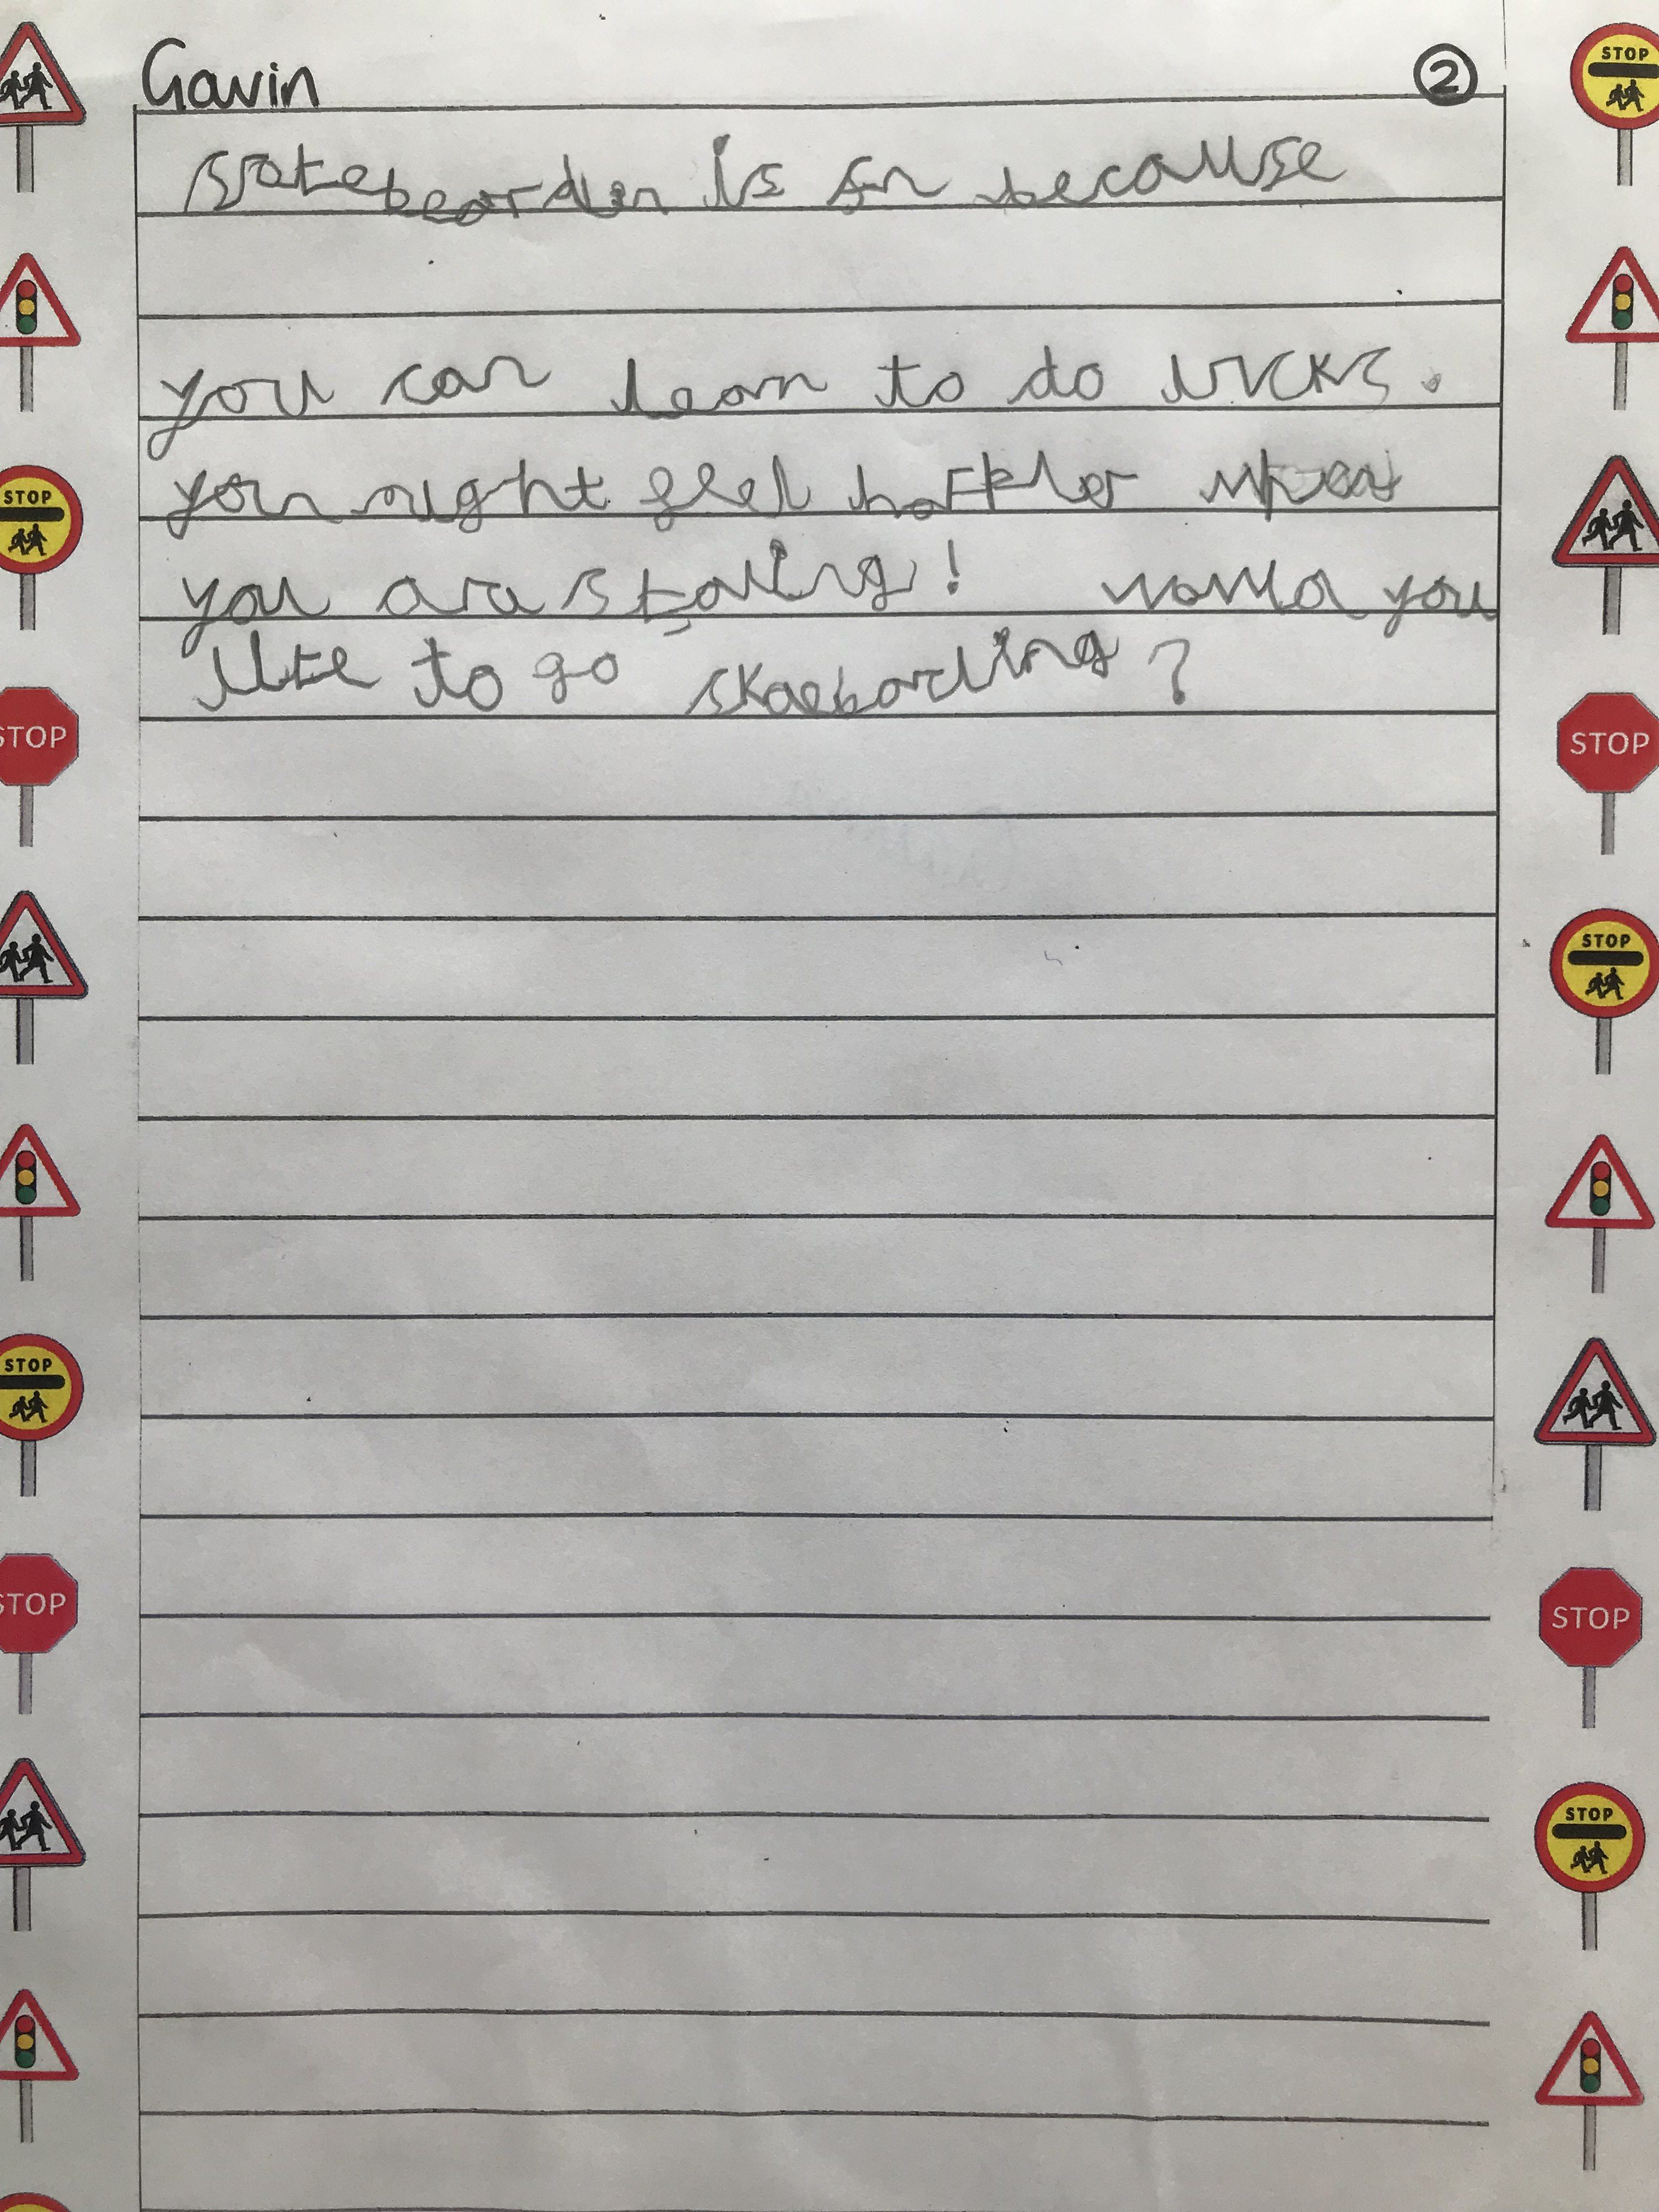 Gavin ②
skatebearden is fn because
you can learn to do tricks.
you might feel happier when
you are skating! would you
like to go skaeboarding?
STOP
STOP
STOP
STOP
STOP
STOP
STOP
STOP
STOP